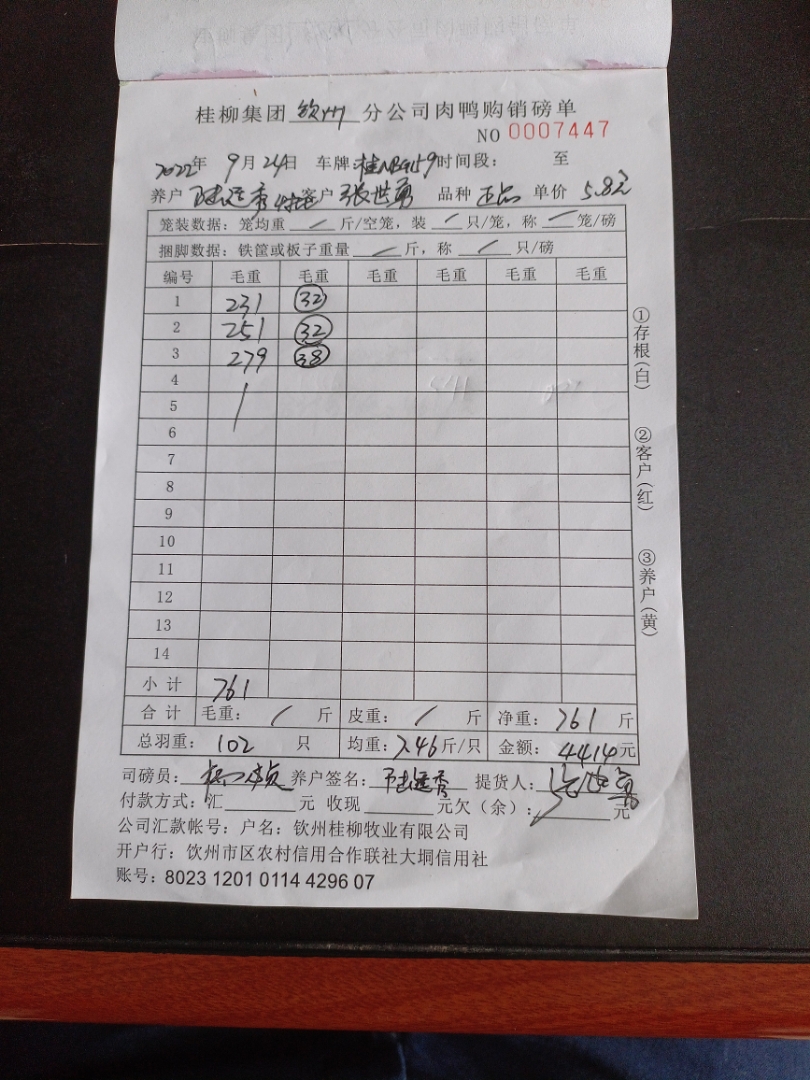 桂柳集团 钦州 分公司肉鸭购销磅单
NO 0007447
2022年 9月24日 车牌: 桂 时间段: 至
养户 客户 张世勇 品种 正品 单价 5.8元
笼装数据: 笼均重 / 斤/空笼, 装 / 只/笼, 称 / 笼/磅
捆脚数据: 铁筐或板子重量 / 斤, 称 / 只/磅
编号 毛重 毛重 毛重 毛重 毛重 毛重
1 231 32
2 251 32
3 279 38
4
5
6
7
8
9
10
11
12
13
14
小计 761
合计 毛重: / 斤 皮重: / 斤 净重: 761 斤
总羽重: 102 只 均重: 7.46斤/只 金额: 4414元
司磅员: 养户签名: 提货人:
付款方式: 汇 元 收现 元欠(余): 元
公司汇款帐号: 户名: 钦州桂柳牧业有限公司
开户行: 钦州市区农村信用合作联社大垌信用社
账号: 8023 1201 0114 4296 07
①存根(白)
②客户(红)
③养户(黄)